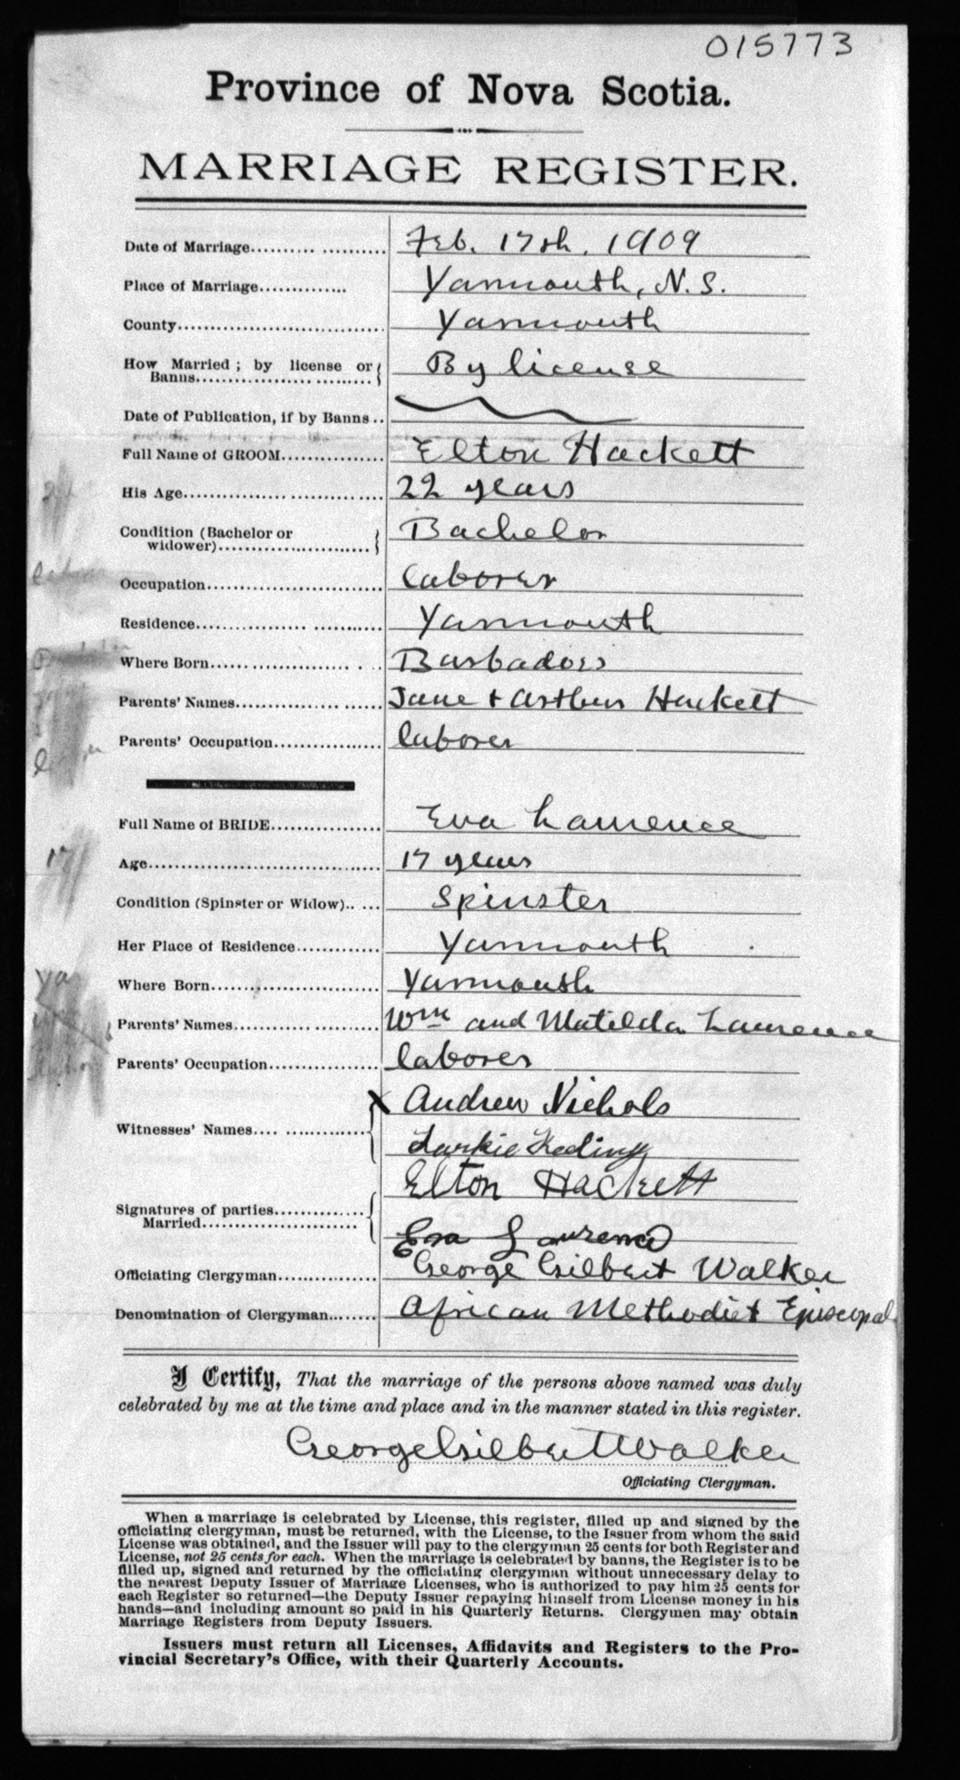 015773
Province of Nova Scotia.
MARRIAGE REGISTER.
Date of Marriage Feb. 17th, 1909
Place of Marriage Yarmouth, N.S.
County Yarmouth
How Married; by license or
Banns By license
Date of Publication, if by Banns
Full Name of GROOM Elton Hackett
His Age 22 years
Condition (Bachelor or
widower) Bachelor
Occupation laborer
Residence Yarmouth
Where Born Barbadoes
Parents' Names Jane + Arthur Hackett
Parents' Occupation laborer
Full Name of BRIDE Eva Laurence
17
Age 17 years
Condition (Spinster or Widow) Spinster
Her Place of Residence Yarmouth
Yar
Where Born Yarmouth
Parents' Names Wm and Matilda Laurence
Parents' Occupation laborer
X Andrew Nichols
Witnesses' Names
Elton Hackett
Signatures of parties
Married Eva Lawrence
Officiating Clergyman George Gilbert Walker
Denomination of Clergyman African Methodist Episcopal
I Certify, That the marriage of the persons above named was duly
celebrated by me at the time and place and in the manner stated in this register.
George Gilbert Walker
Officiating Clergyman.
When a marriage is celebrated by License, this register, filled up and signed by the
officiating clergyman, must be returned, with the License, to the Issuer from whom the said
License was obtained, and the Issuer will pay to the clergyman 25 cents for both Register and
License, not 25 cents for each. When the marriage is celebrated by banns, the Register is to be
filled up, signed and returned by the officiating clergyman without unnecessary delay to
the nearest Deputy Issuer of Marriage Licenses, who is authorized to pay him 25 cents for
each Register so returned—the Deputy Issuer repaying himself from License money in his
hands—and including amount so paid in his Quarterly Returns. Clergymen may obtain
Marriage Registers from Deputy Issuers.
Issuers must return all Licenses, Affidavits and Registers to the Pro-
vincial Secretary's Office, with their Quarterly Accounts.